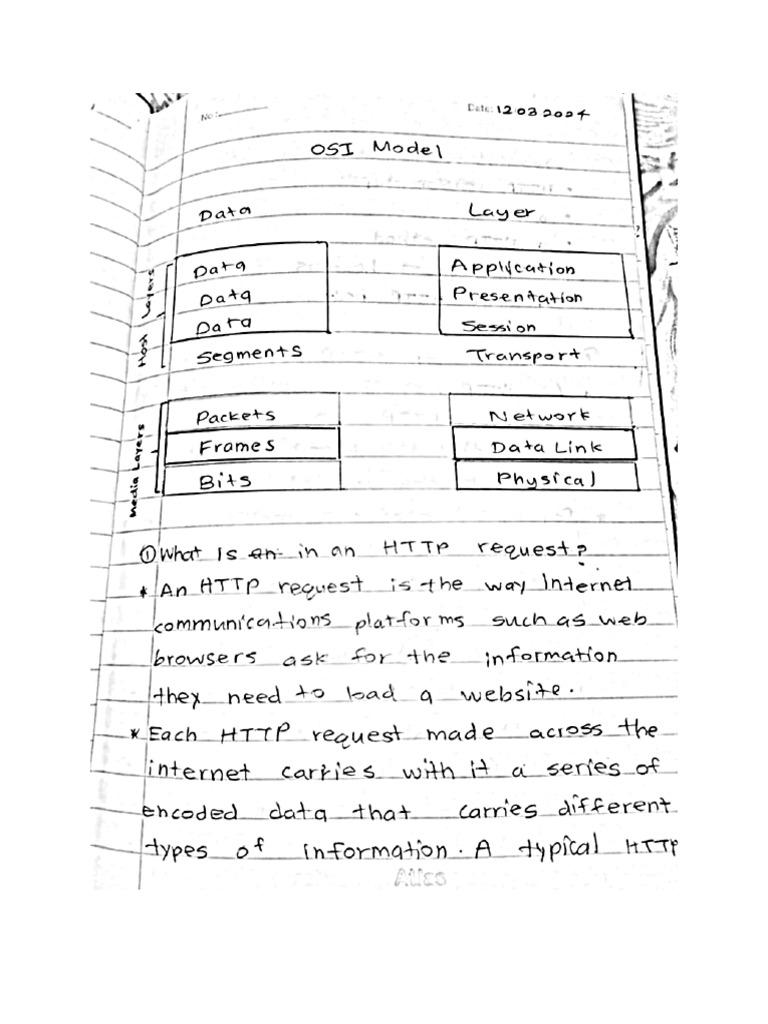 No:
Date: 12 03 2024
OSI Model
Data Layer
Data Application
Data Presentation
Data Session
Host Layers
Segments Transport
Packets Network
Frames Data Link
Bits Physical
Media Layers
① What Is an in an HTTP request?
* An HTTP request is the way Internet
communications platforms such as web
browsers ask for the information
they need to load a website.
* Each HTTP request made across the
internet carries with it a series of
encoded data that carries different
types of information. A typical HTTP